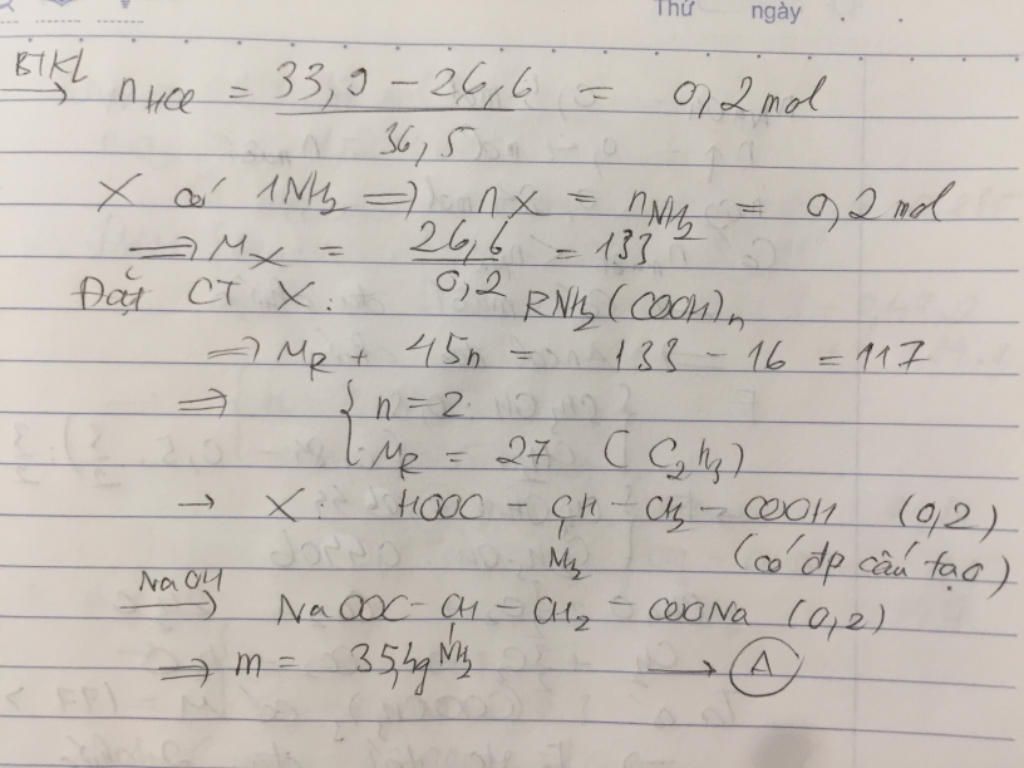 Thứ ngày
BTKL → nHCl = (33,9 − 26,6) / 36,5 = 0,2 mol
X có 1NH₂ ⟹ nX = nNH₂ = 0,2 mol
⟹ Mx = 26,6 / 0,2 = 133
Đặt CT X: RNH₂(COOH)n
⟹ MR + 45n = 133 − 16 = 117
⟹ { n = 2
MR = 27 (C₂H₃)
→ X: HOOC − CH − CH₂ − COOH (0,2)
NH₂ (có đp cấu tạo)
NaOH → NaOOC − CH − CH₂ − COONa (0,2)
NH₂
⟹ m = 35,4g → A